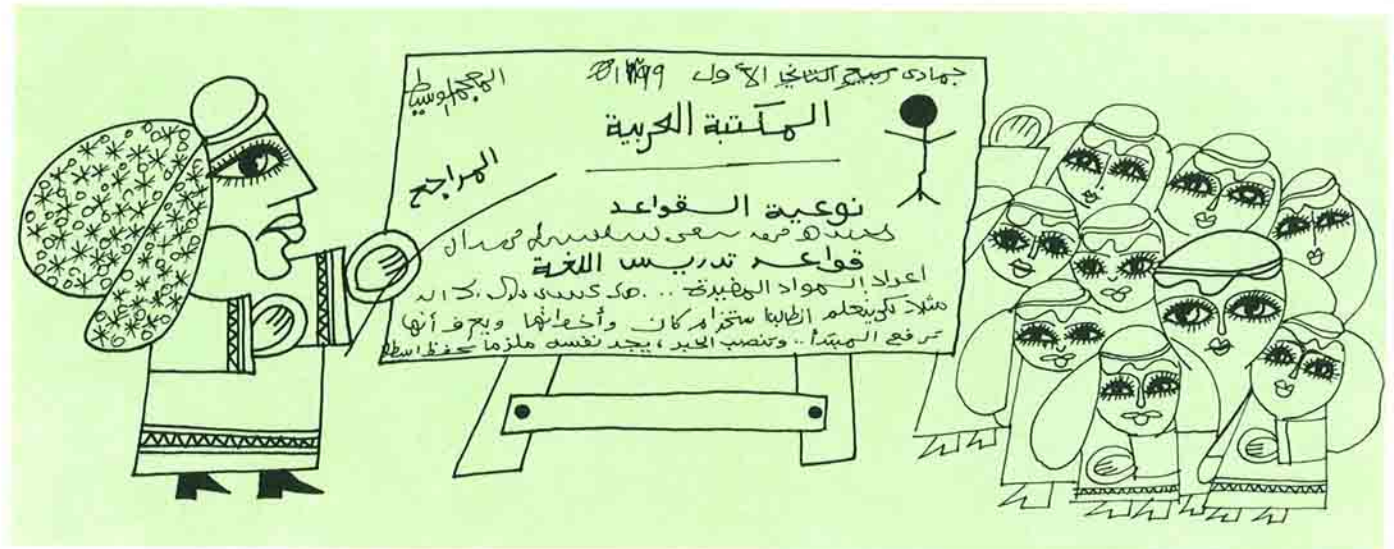 جمادى ربيع الثاني الأول
المعجم الوسيط
المكتبة العربية
المراجع
نوعية القواعد
قواعد تدريس اللغة
اعداد المواد المفيدة ..
مثلا لكي يتعلم الطالب استخدام كان وأخواتها ويعرف أنها
ترفع المبتدأ .. وتنصب الخبر ، يجد نفسه ملزما بحفظ